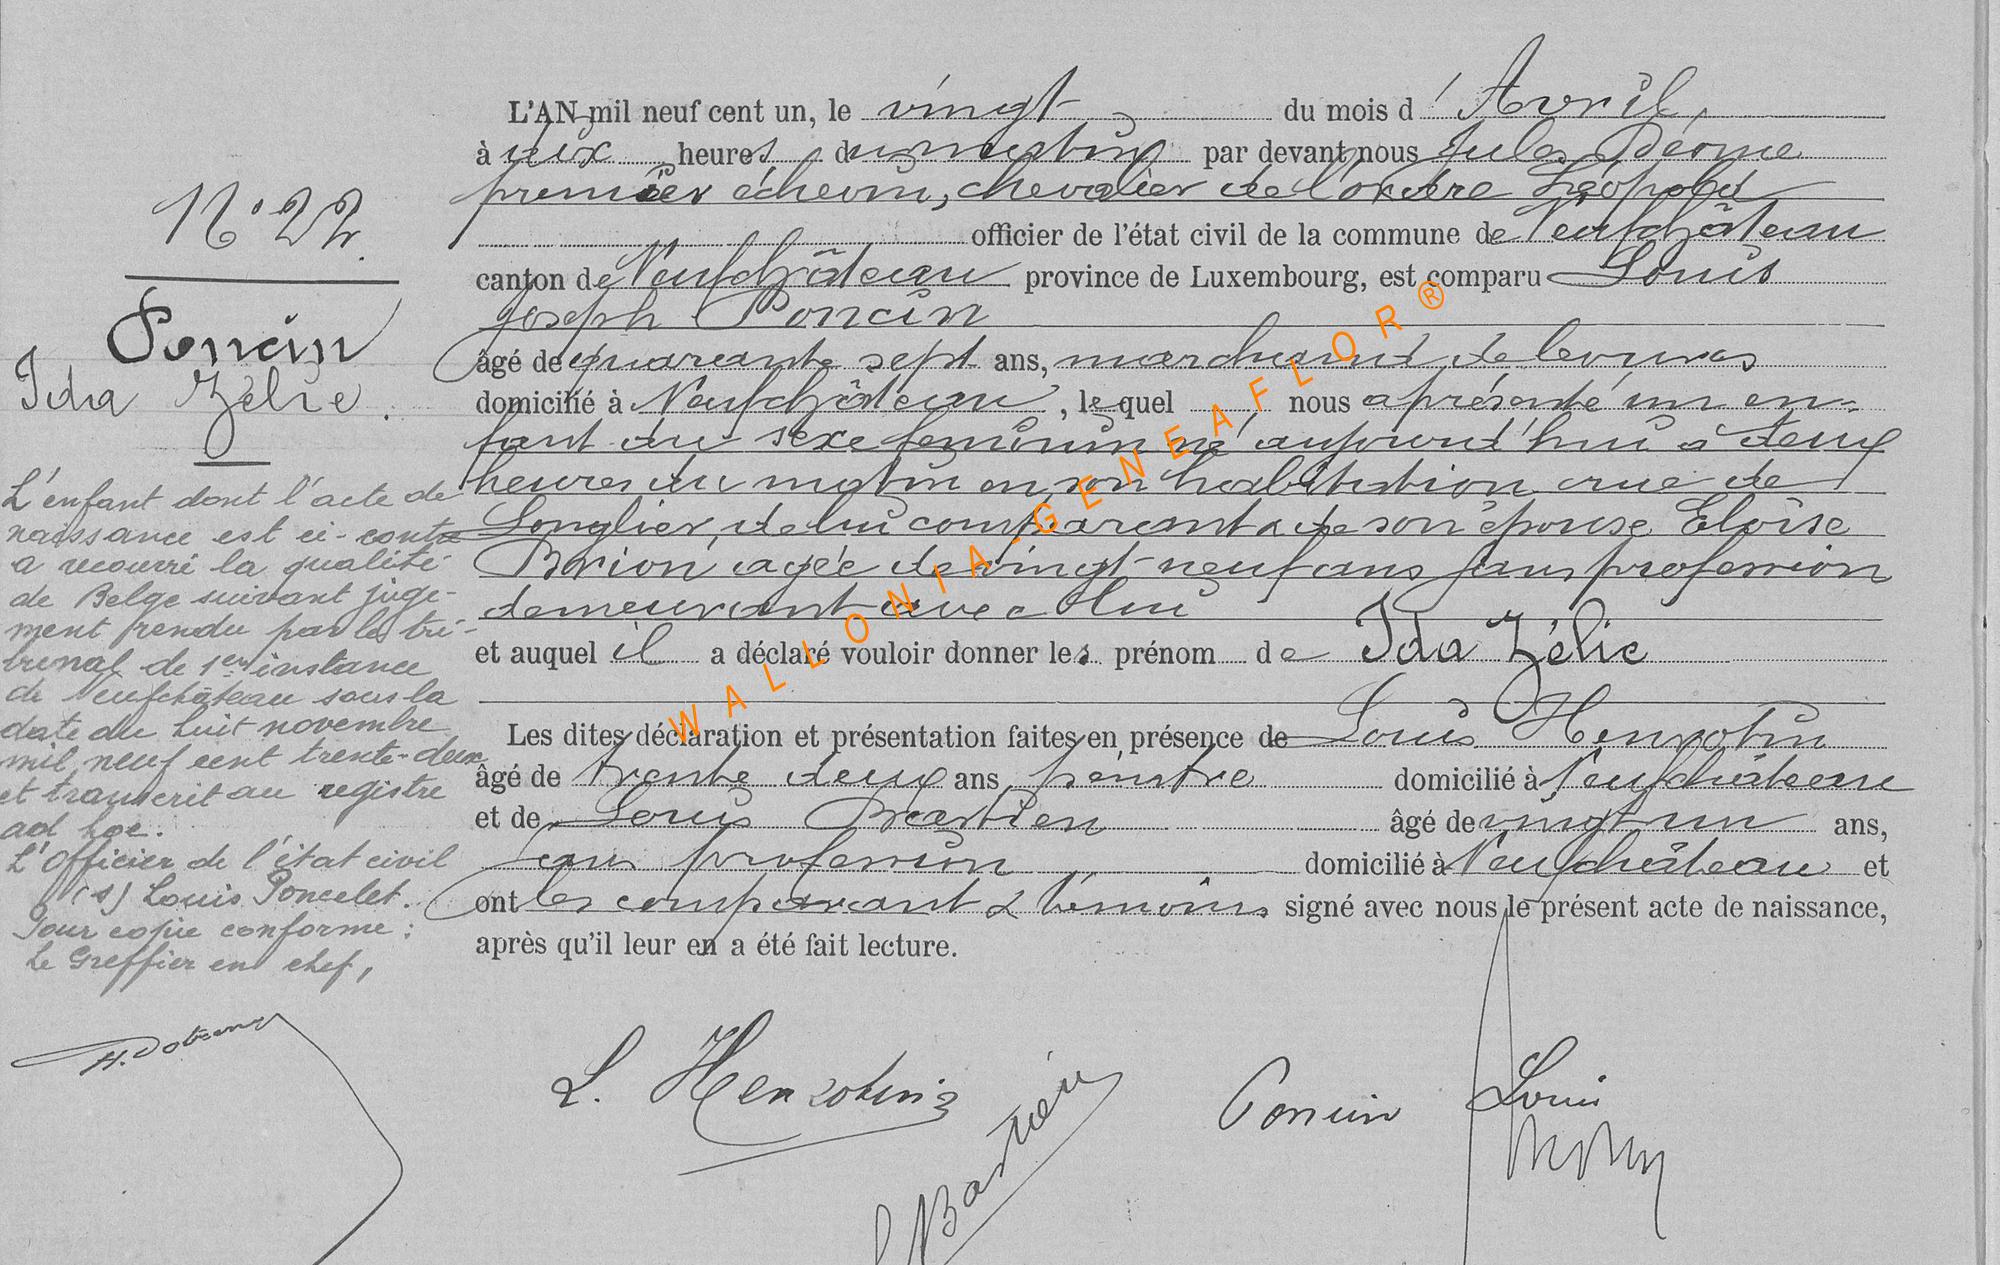 N° 22.
Poncin
Ida Zélie.
L'enfant dont l'acte de
naissance est ci-contre
a recouvré la qualité
de Belge suivant juge-
ment rendu par le tri-
bunal de 1er instance
de Neufchâteau sous la
date du huit novembre
mil neuf cent trente-deux
et transcrit au registre
ad hoc.
L'Officier de l'état civil
(s) Louis Poncelet.
Pour copie conforme :
Le Greffier en chef,
L'AN mil neuf cent un, le vingt du mois d'Avril,
à dix heures du matin par devant nous Jules
premier échevin, chevalier de l'ordre Léopold
officier de l'état civil de la commune de Neufchâteau
canton de Neufchâteau province de Luxembourg, est comparu Louis
Joseph Poncin
âgé de quarante sept ans, marchand de levures
domicilié à Neufchâteau, lequel nous a présenté un en-
fant du sexe féminin né aujourd'hui à deux
heures du matin en son habitation rue de
Longlier, de lui comparant & de son épouse Eloïse
Brion agée de vingt-neuf ans sans profession
demeurant avec lui
et auquel il a déclaré vouloir donner les prénom de Ida Zélie
Les dites déclaration et présentation faites en présence de Louis Henrotin
âgé de trente deux ans peintre domicilié à Neufchâteau
et de Louis Bastien âgé de vingt un ans,
sans profession domicilié à Neufchâteau et
ont les comparant & témoins signé avec nous le présent acte de naissance,
après qu'il leur en a été fait lecture.
L. Henrotin
L Bastien
Poncin
Louis
WALLONIA-GENEAFLOR®